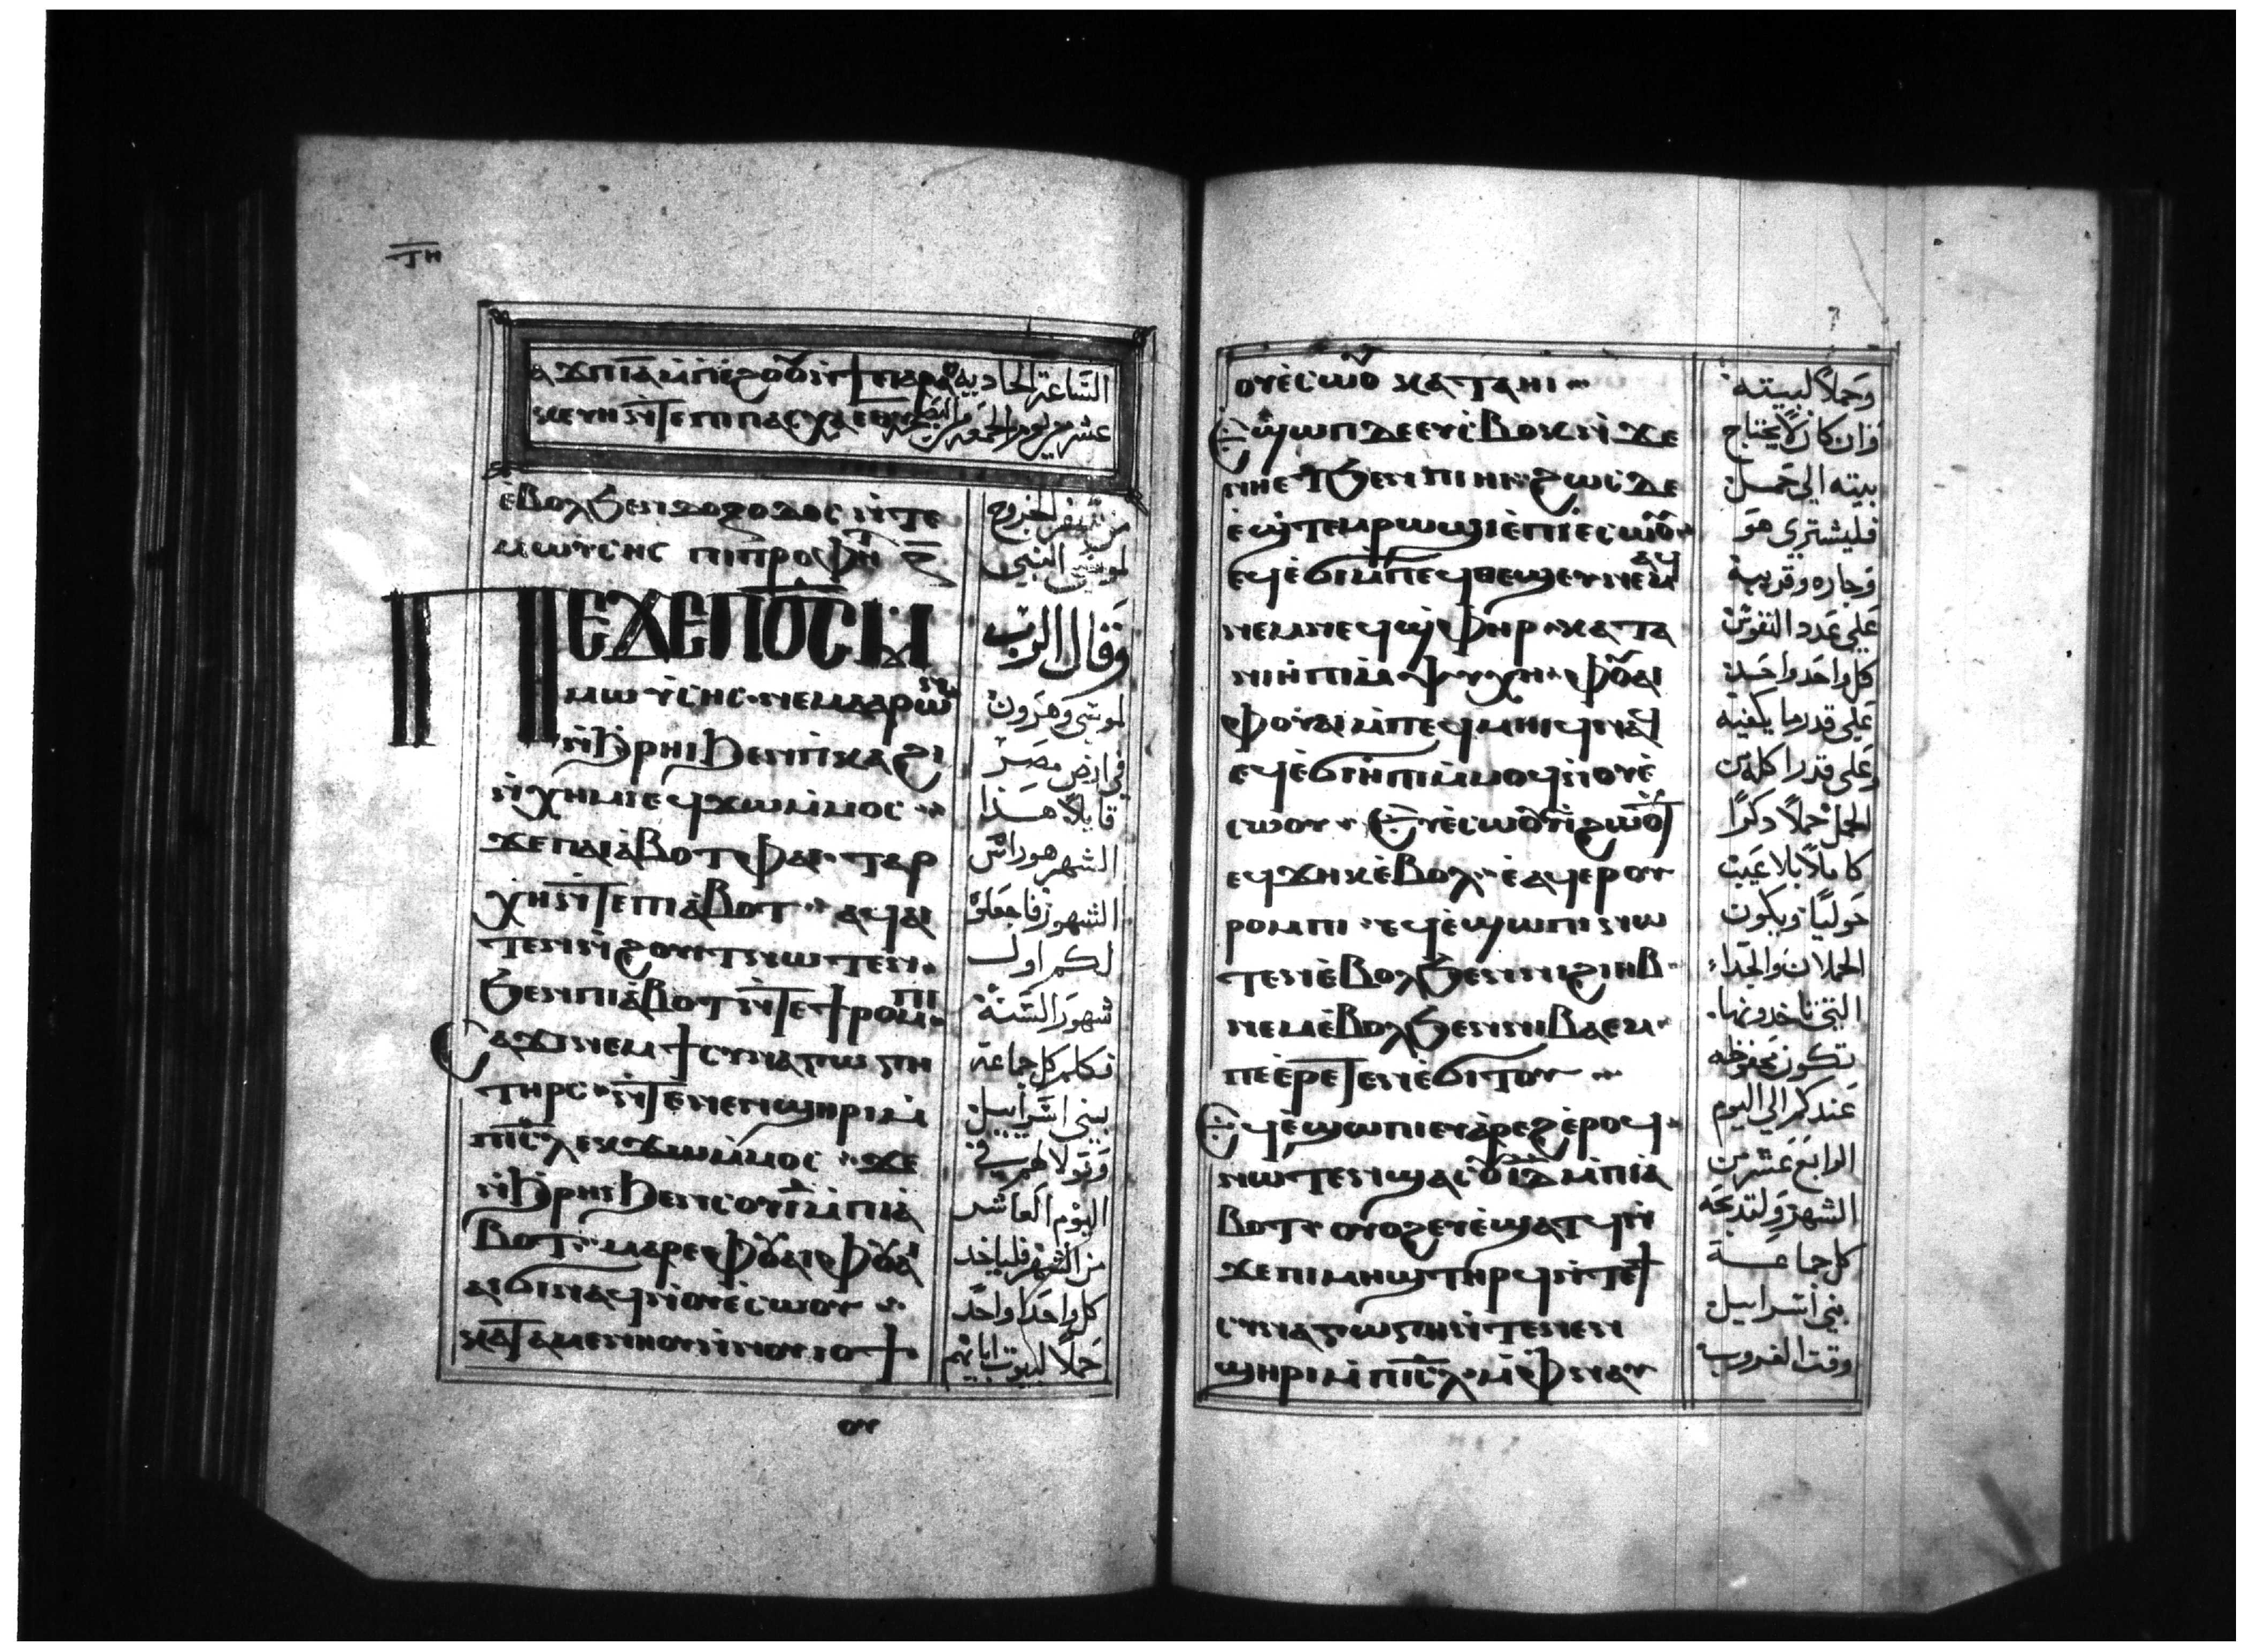 ⲧⲏ
ⲁϫⲡⲓⲁ ⲙⲡⲓⲉϩⲟⲟⲩ ⲛϯⲡⲁⲣⲁ
الساعة الحادية
ⲥⲕⲉⲩⲏ ⲛⲧⲉ ⲡⲓⲡⲁⲥⲭⲁ ⲉⲑⲩ
عشر من يوم الجمعة من البصخة
ⲉⲃⲟⲗϧⲉⲛⲇⲟⲝⲟⲇⲟⲥ ⲛⲧⲉ
ⲙⲱⲩⲥⲏⲥ ⲡⲓⲡⲣⲟⲫⲏⲧ
ⲡⲉϫⲉⲡⲟ̅ⲥ̅ ⲙ
ⲙⲱⲩⲥⲏⲥ ⲛⲉⲙⲁⲁⲣⲱⲛ
ⲛϩⲣⲏⲓϧⲉⲛⲡⲕⲁϩⲓ
ⲛⲭⲏⲙⲓ ⲉϥϫⲱⲙⲙⲟⲥ
ϫⲉⲡⲁⲓⲁⲃⲟⲧ ⲫⲁⲓ ⲧⲁⲣ
ⲭⲏ ⲛⲧⲉⲡⲓⲁⲃⲟⲧ ⲁϥⲁⲓ
ⲧⲉⲛ ⲛϩⲟⲩⲓⲧ ⲛⲱⲧⲉⲛ
ϧⲉⲛⲡⲓⲁⲃⲟⲧ ⲛⲧⲉϯⲣⲟⲙⲡⲓ
ⲥⲁϫⲓ ⲛⲉⲙ ϯⲥⲩⲛⲁⲅⲱⲅⲏ
ⲧⲏⲣⲥ ⲛⲧⲉⲛⲉⲛϣⲏⲣⲓ ⲙ
ⲡⲓⲥ̅ⲗ̅ ⲉⲕϫⲱⲙⲙⲟⲥ ϫⲉ
ⲛϩⲣⲏⲓ ϧⲉⲛⲥⲟⲩⲓ ⲙⲡⲓⲁ
ⲃⲟⲧ ⲙⲁⲣⲉ ⲫⲟⲩⲁⲓ ⲫⲟⲩⲁ
ⲁⲓ ϭⲓⲛⲁϥ ⲛⲟⲩⲉⲥⲱⲟⲩ
ⲕⲁⲧⲁⲙⲉⲛⲏⲟⲩ ⲛⲛⲟⲩⲓⲟϯ
ⲟⲩ
من سفر الخروج
لموسى النبي
وقال الرب
لموسى وهرون
في ارض مصر
قايلا هذا
الشهر هو راس
الشهور فاجعلوه
لكم اول
شهور السنة
فكلم كل جماعة
بني اسراييل
وتقولا لهم في
اليوم العاشر
من الشهر فلياخذ
كل واحد واحد
حملا لبيوت ابايهم
ⲟⲩⲉⲥⲱⲟⲩ ⲕⲁⲧⲁⲏⲓ
ⲉϣⲱⲡ ⲇⲉ ⲉⲩⲥⲃⲟⲕ ⲛϫⲉ
ⲛⲏⲉⲧϧⲉⲛ ⲡⲓⲏⲓ ϩⲱⲥⲇⲉ
ⲉϣⲧⲉⲙⲣⲱϣⲓ ⲉⲡⲓⲉⲥⲱⲟⲩ
ⲉϥⲉϭⲓ ⲙⲡⲉϥⲑⲉϣⲉⲩ ⲛⲉⲙⲁϥ
ⲛⲉⲙⲛⲉϥϣⲫⲏⲣ ⲕⲁⲧⲁ
ⲛⲓⲏⲡⲓ ⲙⲯⲩⲭⲏ ⲫⲟⲩⲁⲓ
ⲫⲟⲩⲁⲓ ⲙⲡⲉϥⲙⲏⲓ ϥⲛⲁ
ⲉϥⲉϭⲓⲏⲡⲓ ⲙⲙⲟϥ ⲛⲟⲩⲉ
ⲥⲱⲟⲩ ⲉⲩⲉⲥⲱⲟⲩ ⲛϩⲱⲟⲩⲧ
ⲉϥϫⲏⲕ ⲉⲃⲟⲗ ⲉⲁϥⲉⲣ ⲟⲩ
ⲣⲟⲙⲡⲓ ⲉϥⲉϣⲱⲡⲓ ⲛⲱ
ⲧⲉⲛ ⲉⲃⲟⲗϧⲉⲛ ⲛⲓϩⲓⲏⲃ
ⲛⲉⲙ ⲉⲃⲟⲗϧⲉⲛ ⲛⲓⲃⲁⲉⲙ
ⲡⲉ ⲉⲣⲉⲧⲉⲛⲉϭⲓⲧⲟⲩ
ⲉϥⲉϣⲱⲡⲓ ⲉⲩⲁⲣⲉϩ ⲉⲣⲟϥ
ⲛⲱⲧⲉⲛ ϣⲁ ⲥⲟⲩⲓⲇ ⲙⲡⲓⲁ
ⲃⲟⲧ ⲟⲩⲟϩ ⲉⲩⲉϣⲁⲧϥ ⲛ
ϫⲉⲡⲓⲙⲏϣ ⲧⲏⲣϥ ⲛⲧⲉϯ
ⲥⲩⲛⲁⲅⲱⲅⲏ ⲛⲧⲉⲛⲉⲛ
ϣⲏⲣⲓ ⲙⲡⲓⲥ̅ⲗ̅ ⲙⲫⲛⲁⲩ
وحملا لبيته
فان كان لا يحتاج
بيته الى حمل
فليشتري هو
وجاره وقريبه
على عدد النفوس
كل واحد واحد
على قدر ما يكفيه
وعلى قدر اكله من
الحمل حملا ذكرا
كاملا بلا عيب
حوليا ويكون
الحملان والجداء
التي تاخذونها
تكون محفوظه
عندكم الى اليوم
الرابع عشر من
الشهر ولتذبحه
كل جماعة
بني اسراييل
وقت الغروب